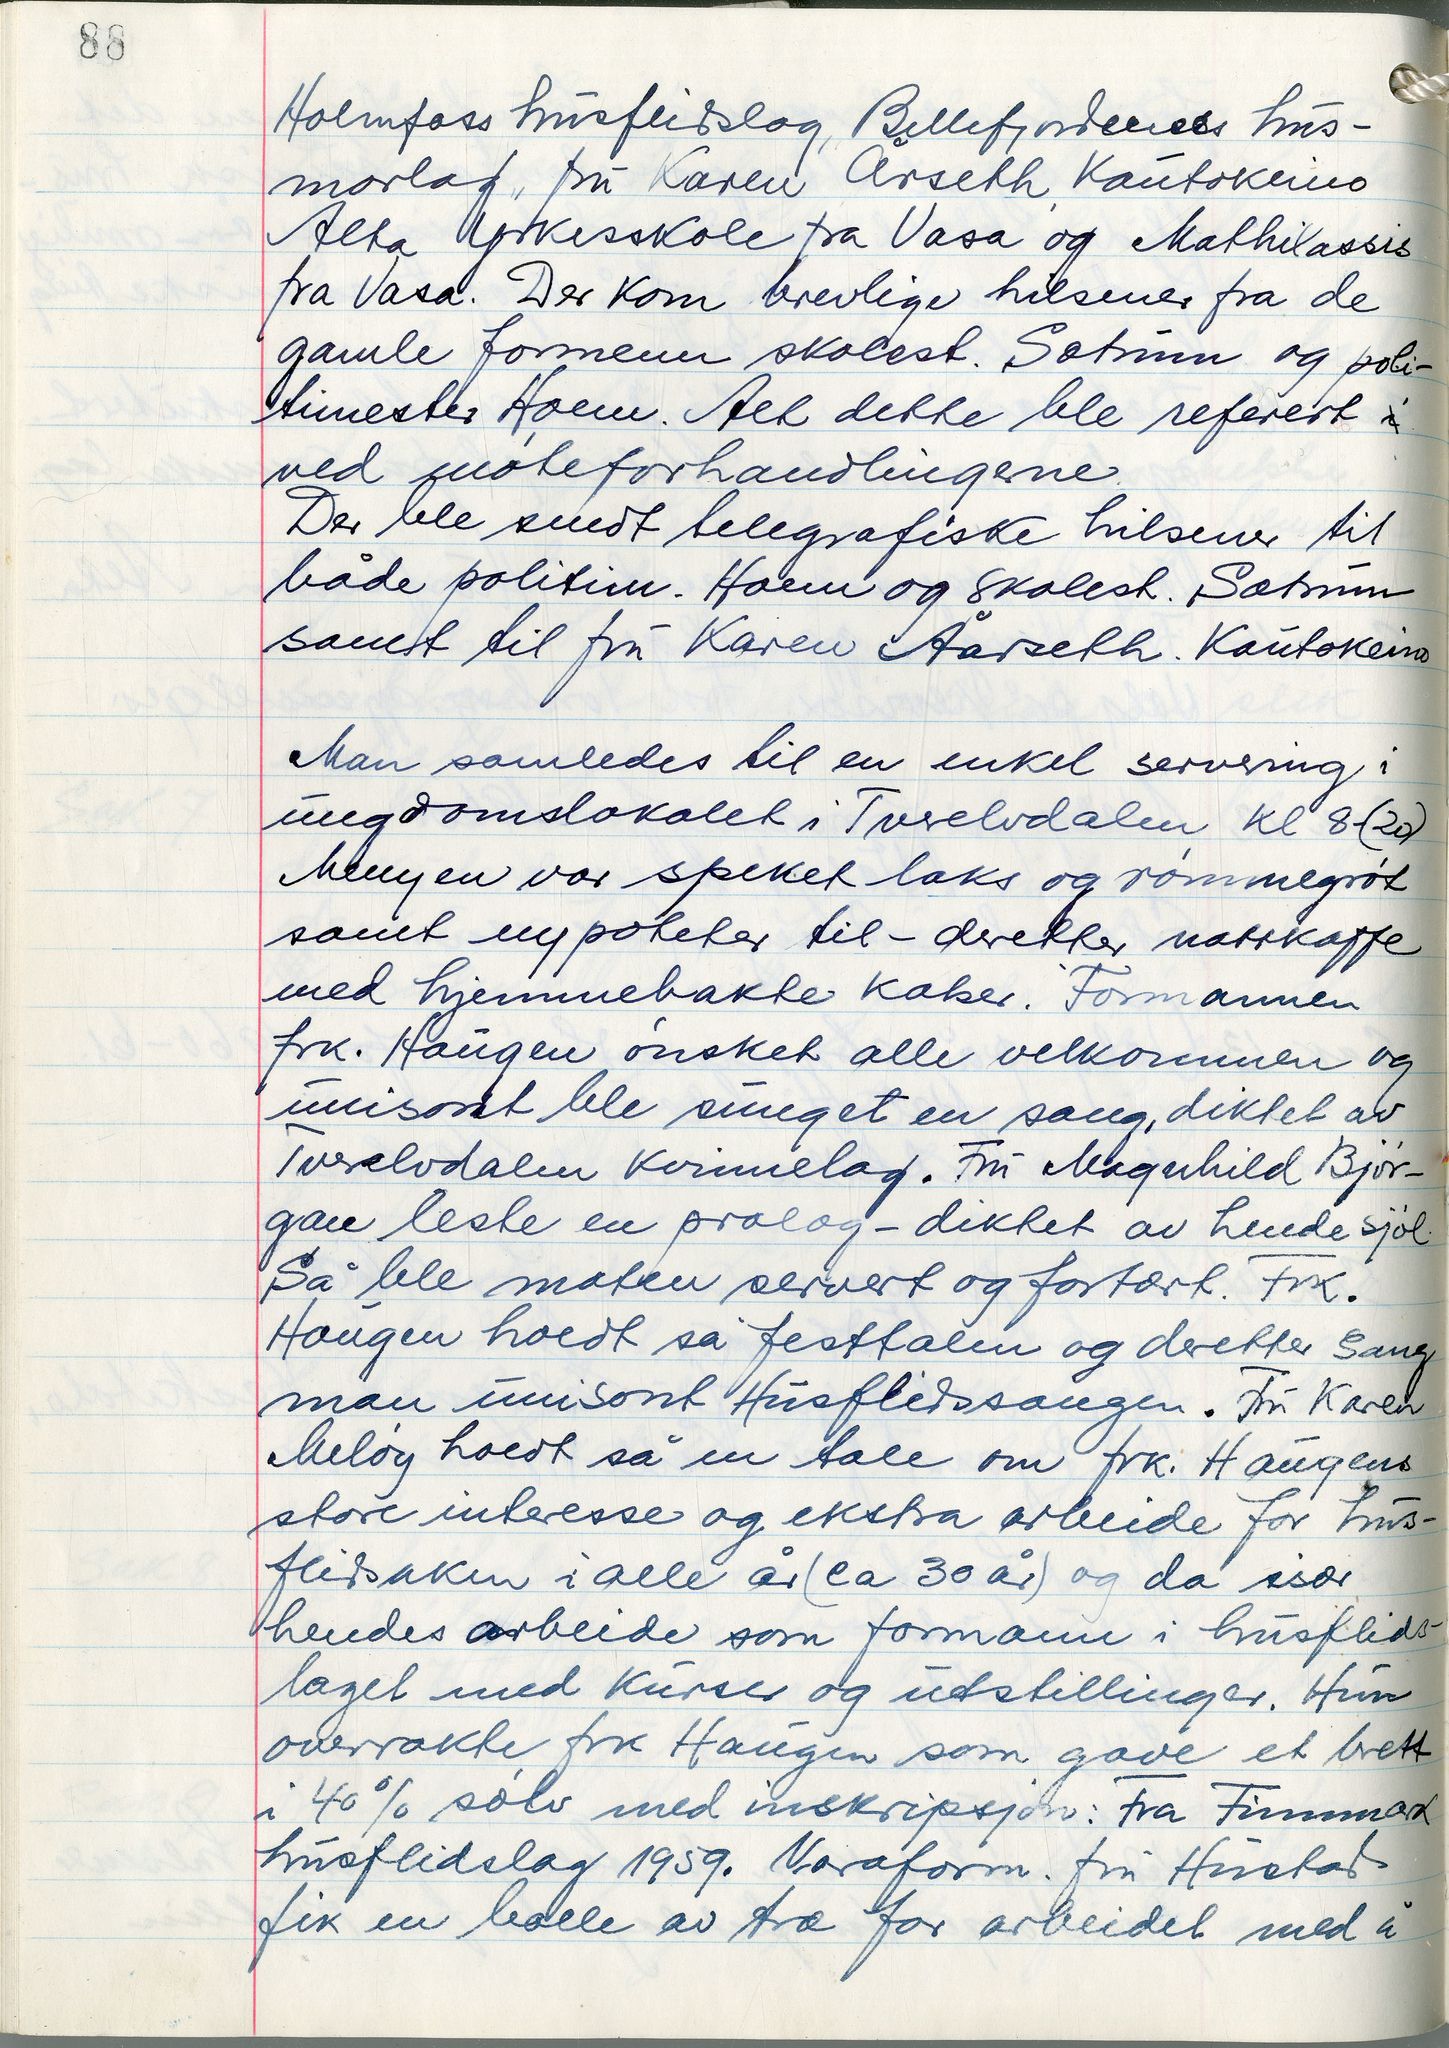 88
Holmfoss husflidslag, Billefjordenes hus-
morlag, fru Karen Årseth, Kautokeino
Alta Yrkesskole fra Vasa og Mathilassis
fra Vasa. Der kom brevlige hilsener fra de
gamle formenn skolest. Sætrum og poli-
timester Hoem. Alt dette ble referert
ved møteforhandlingerne.
Der ble sendt telegrafiske hilsener til
både politim. Hoem og skolest. Sætrum
samt til fru Karen Aårseth. Kautokeino
Man samledes til en enkel servering i
ungdomslokalet i Tverelvdalen kl 8 (20)
Menyen var speket laks og rømmegrøt
samt nypoteter til – deretter nattkaffe
med hjemmebakte kaker. Formannen
frk. Haugen ønsket alle velkommen og
unisont ble sunget en sang, diktet av
Tverelvdalen Kvinnelag. Fru Magnhild Bjør-
gan leste en prolog – diktet av hende sjøl.
Så ble maten servert og fortært. Frk.
Haugen holdt så festtalen og deretter sang
man unisont Husflidssangen. Fru Karen
Meløy holdt så en tale om frk. Haugens
store interesse og ekstra arbeide for hus-
flidsaken i alle år (ca 30 år) og da især
hendes arbeide som formann i husflids-
laget med kurser og utstillinger. Hun
overrakte frk Haugen som gave et brett
i 40% sølv med inskripsjon: Fra Finnmark
husflidslag 1959. Varaform. fru Hustad
fik en bolle av træ for arbeidet med å